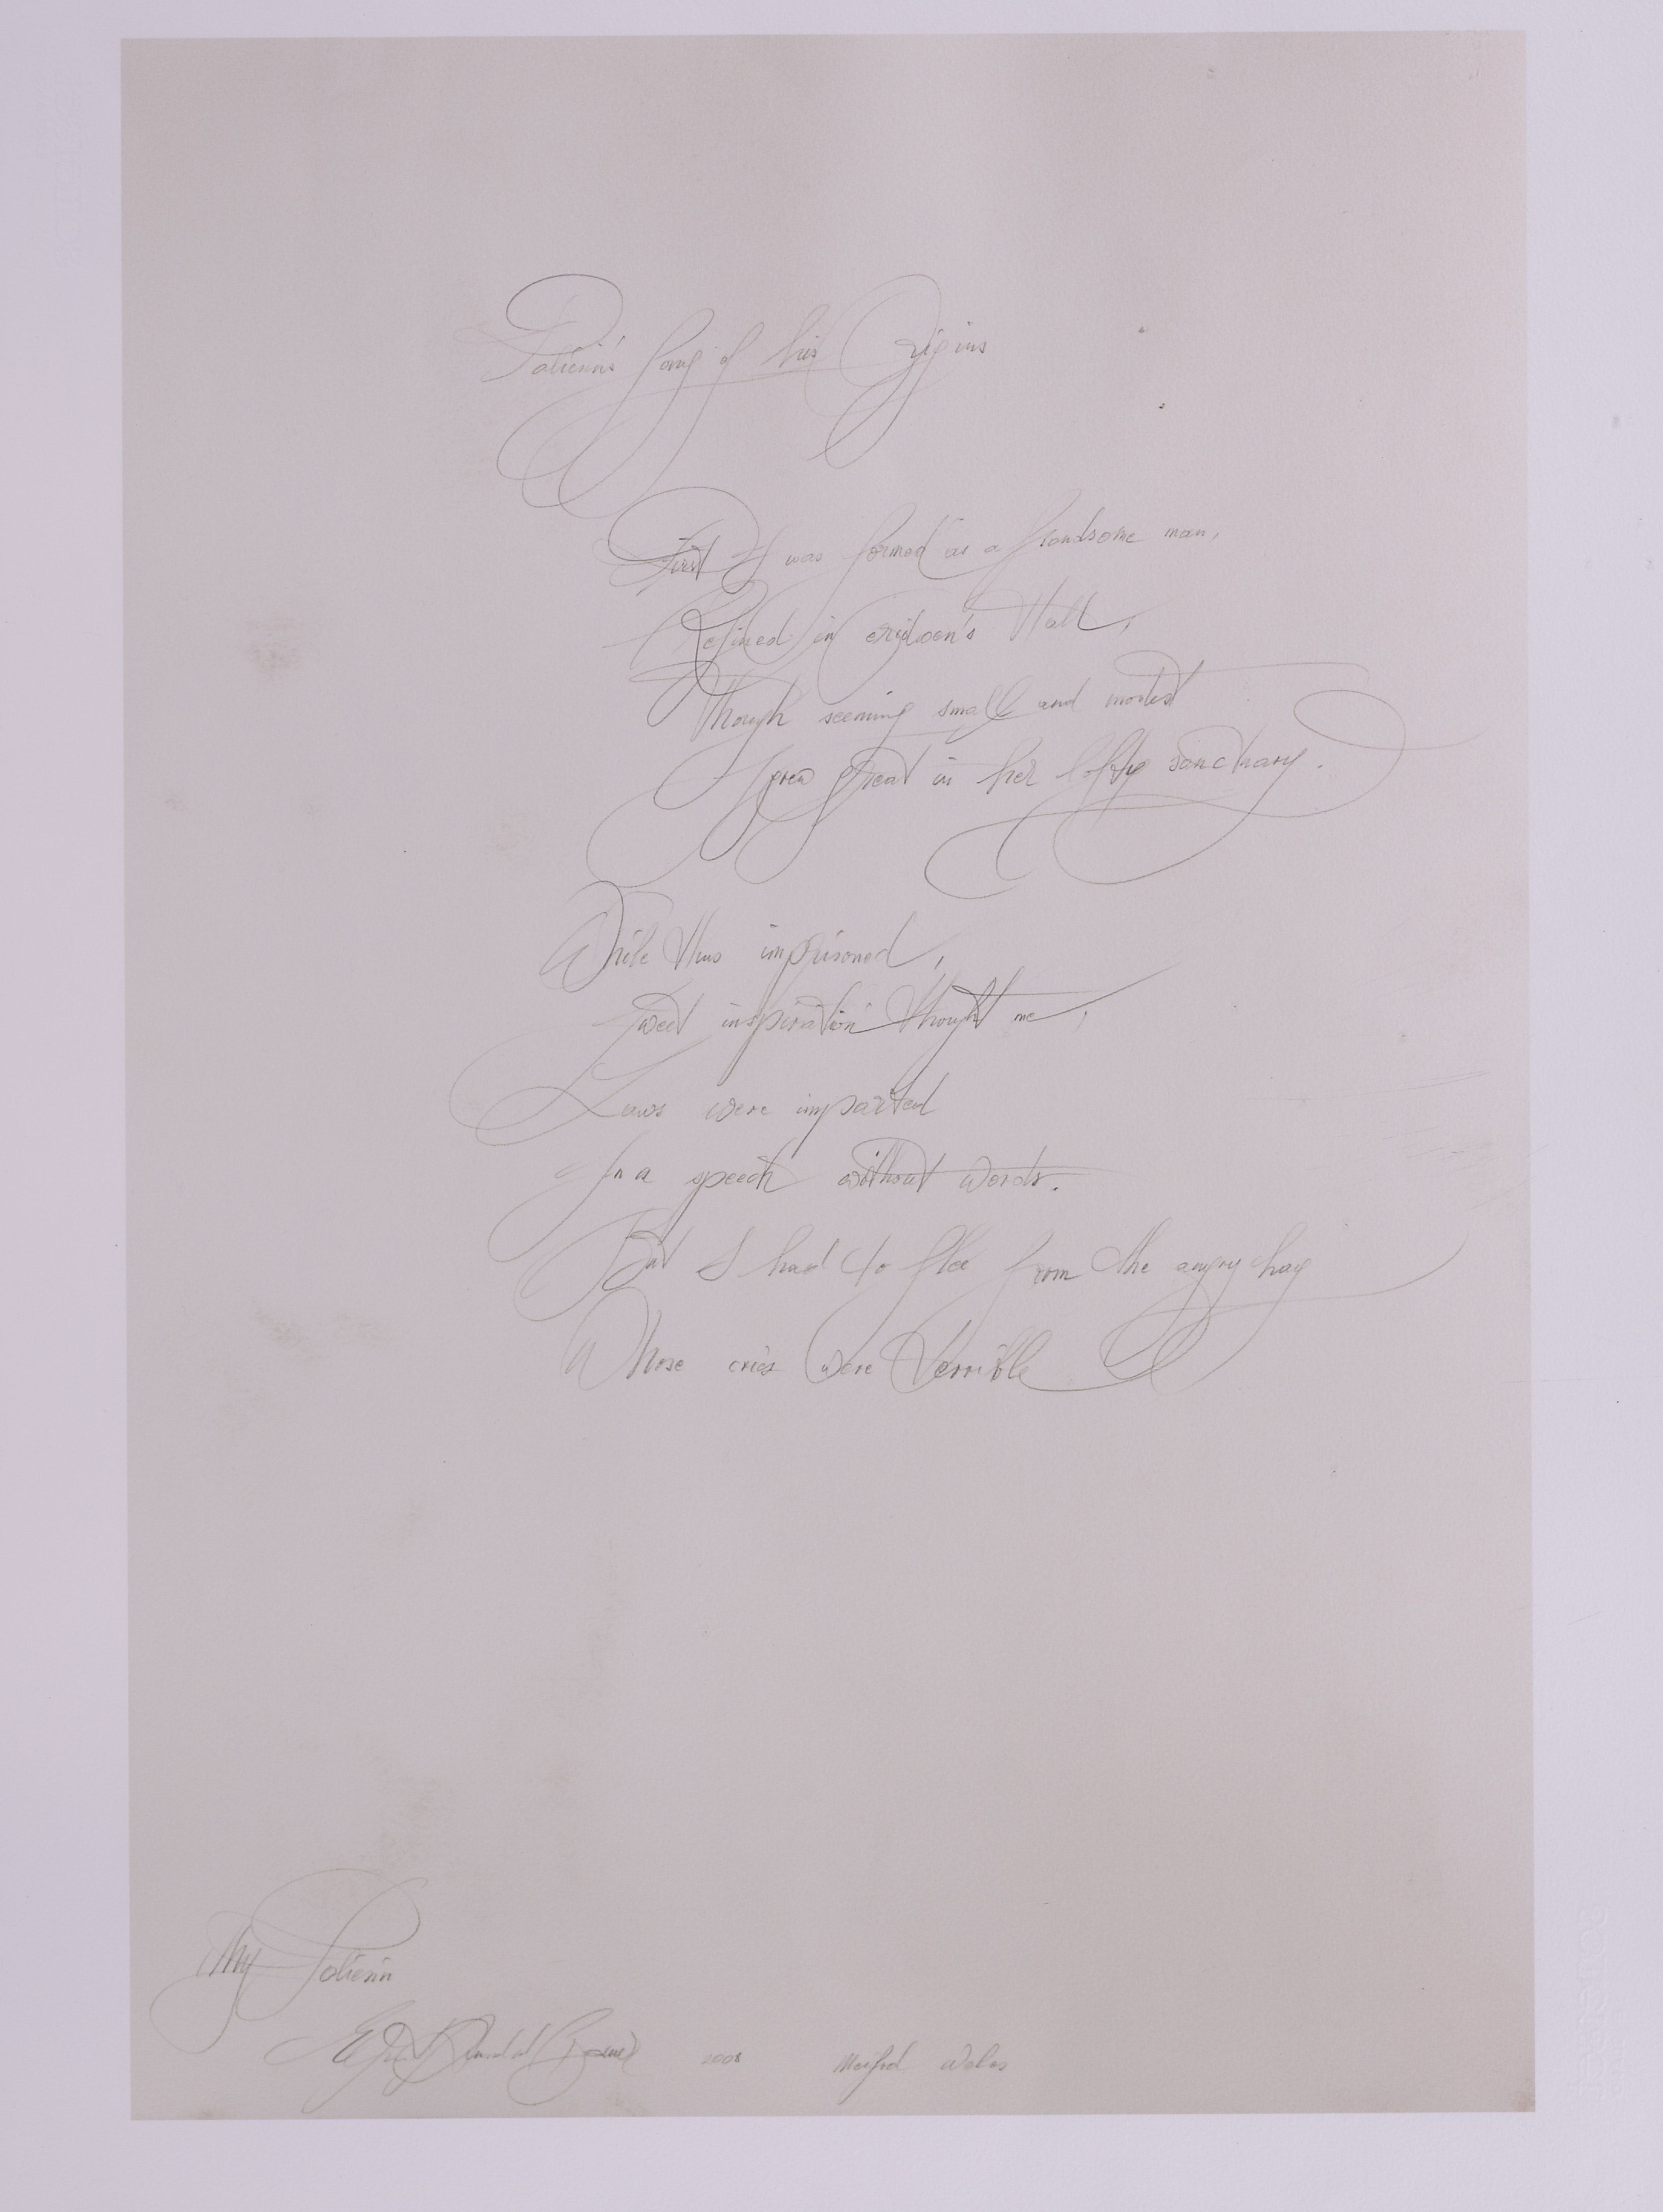 Taliesin's Song of his Origins
First I was formed as a handsome man,
Refined in Ceridwen's Hall,
Though seeming small and modest
I grew great in her lofty sanctuary.
While thus imprisoned,
Sweet inspiration thought me,
Laws were imparted
In a speech without words.
But I had to flee from the angry hag
Whose cries were terrible
Taliesin
2008 Meifod Wales